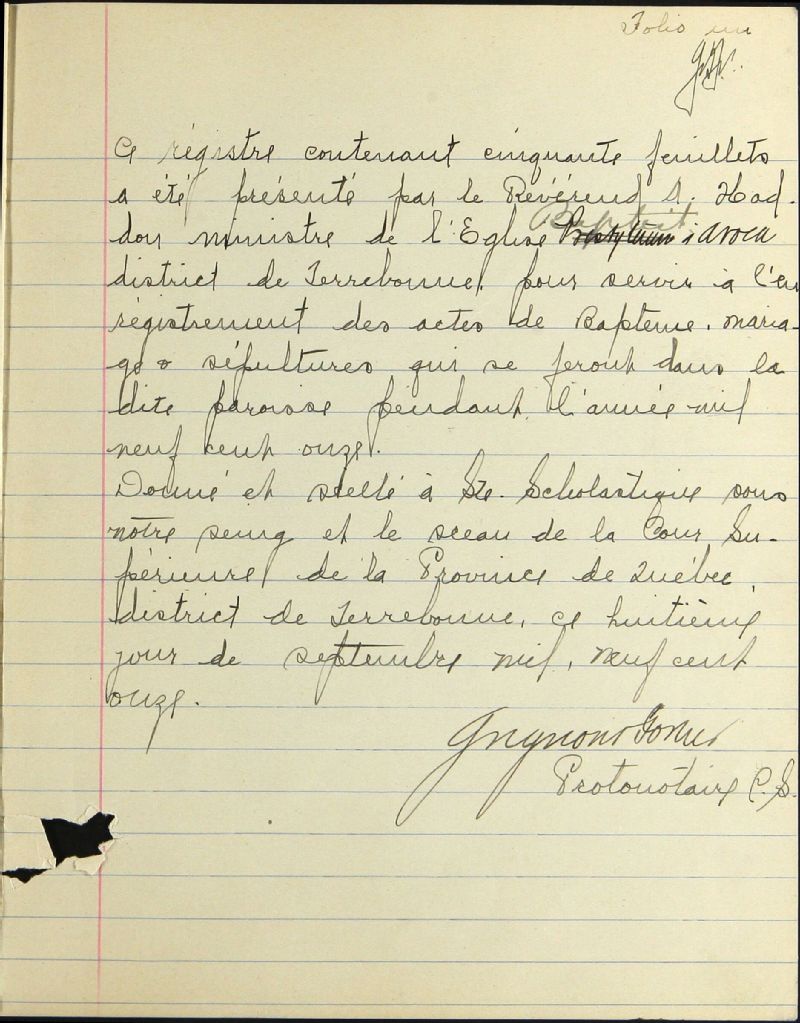 Folio un
Ce régistre contenant cinquante feuillets
a été présenté par le Révérend D. Had-
don ministre de l'Eglise Baptist Avoca
district de Terrebonne, pour servir à l'en
régistrement des actes de Bapteme, maria-
ge & sépultures qui se feront dans la
dite paroisse pendant l'année mil
neuf cent onze.
Donné et scellé à Ste. Scholastique sous
notre seing et le sceau de la Cour Su-
périeure de la Province de Québec,
district de Terrebonne, ce huitième
jour de septembre mil, neuf cent
onze.
Grignon & Fortier
Protonotaire C.S.